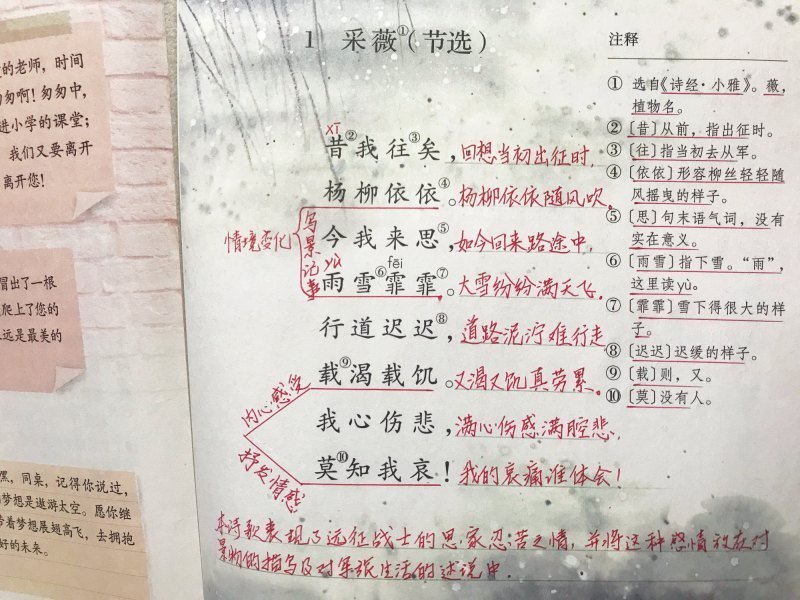 的老师，时间
匆啊！匆匆中，
进小学的课堂；
我们又要离开
离开您！
冒出了一根
爬上了您的
远是最美的
嘿，同桌，记得你说过，
梦想是遨游太空。愿你继
着梦想展翅高飞，去拥抱
好的未来。
1 采薇①（节选）
xī
昔②我往③矣，回想当初出征时，
杨柳依依④。杨柳依依随风吹。
情境变化
写景记事
今我来思⑤，如今回来路途中，
yù fēi
雨雪⑥霏霏⑦。大雪纷纷满天飞。
行道迟迟⑧，道路泥泞难行走
载⑨渴载饥。又渴又饥真劳累。
内心感受
我心伤悲，满心伤感满腔悲，
抒发情感
莫⑩知我哀！我的哀痛谁体会！
本诗歌表现了远征战士的思家忍苦之情，并将这种情放在对
景物的描写及对军旅生活的述说中.
注释
① 选自《诗经·小雅》。薇，
植物名。
② 〔昔〕从前，指出征时。
③ 〔往〕指当初去从军。
④ 〔依依〕形容柳丝轻轻随
风摇曳的样子。
⑤ 〔思〕句末语气词，没有
实在意义。
⑥ 〔雨雪〕指下雪。“雨”，
这里读yù。
⑦ 〔霏霏〕雪下得很大的样
子。
⑧ 〔迟迟〕迟缓的样子。
⑨ 〔载〕则，又。
⑩ 〔莫〕没有人。